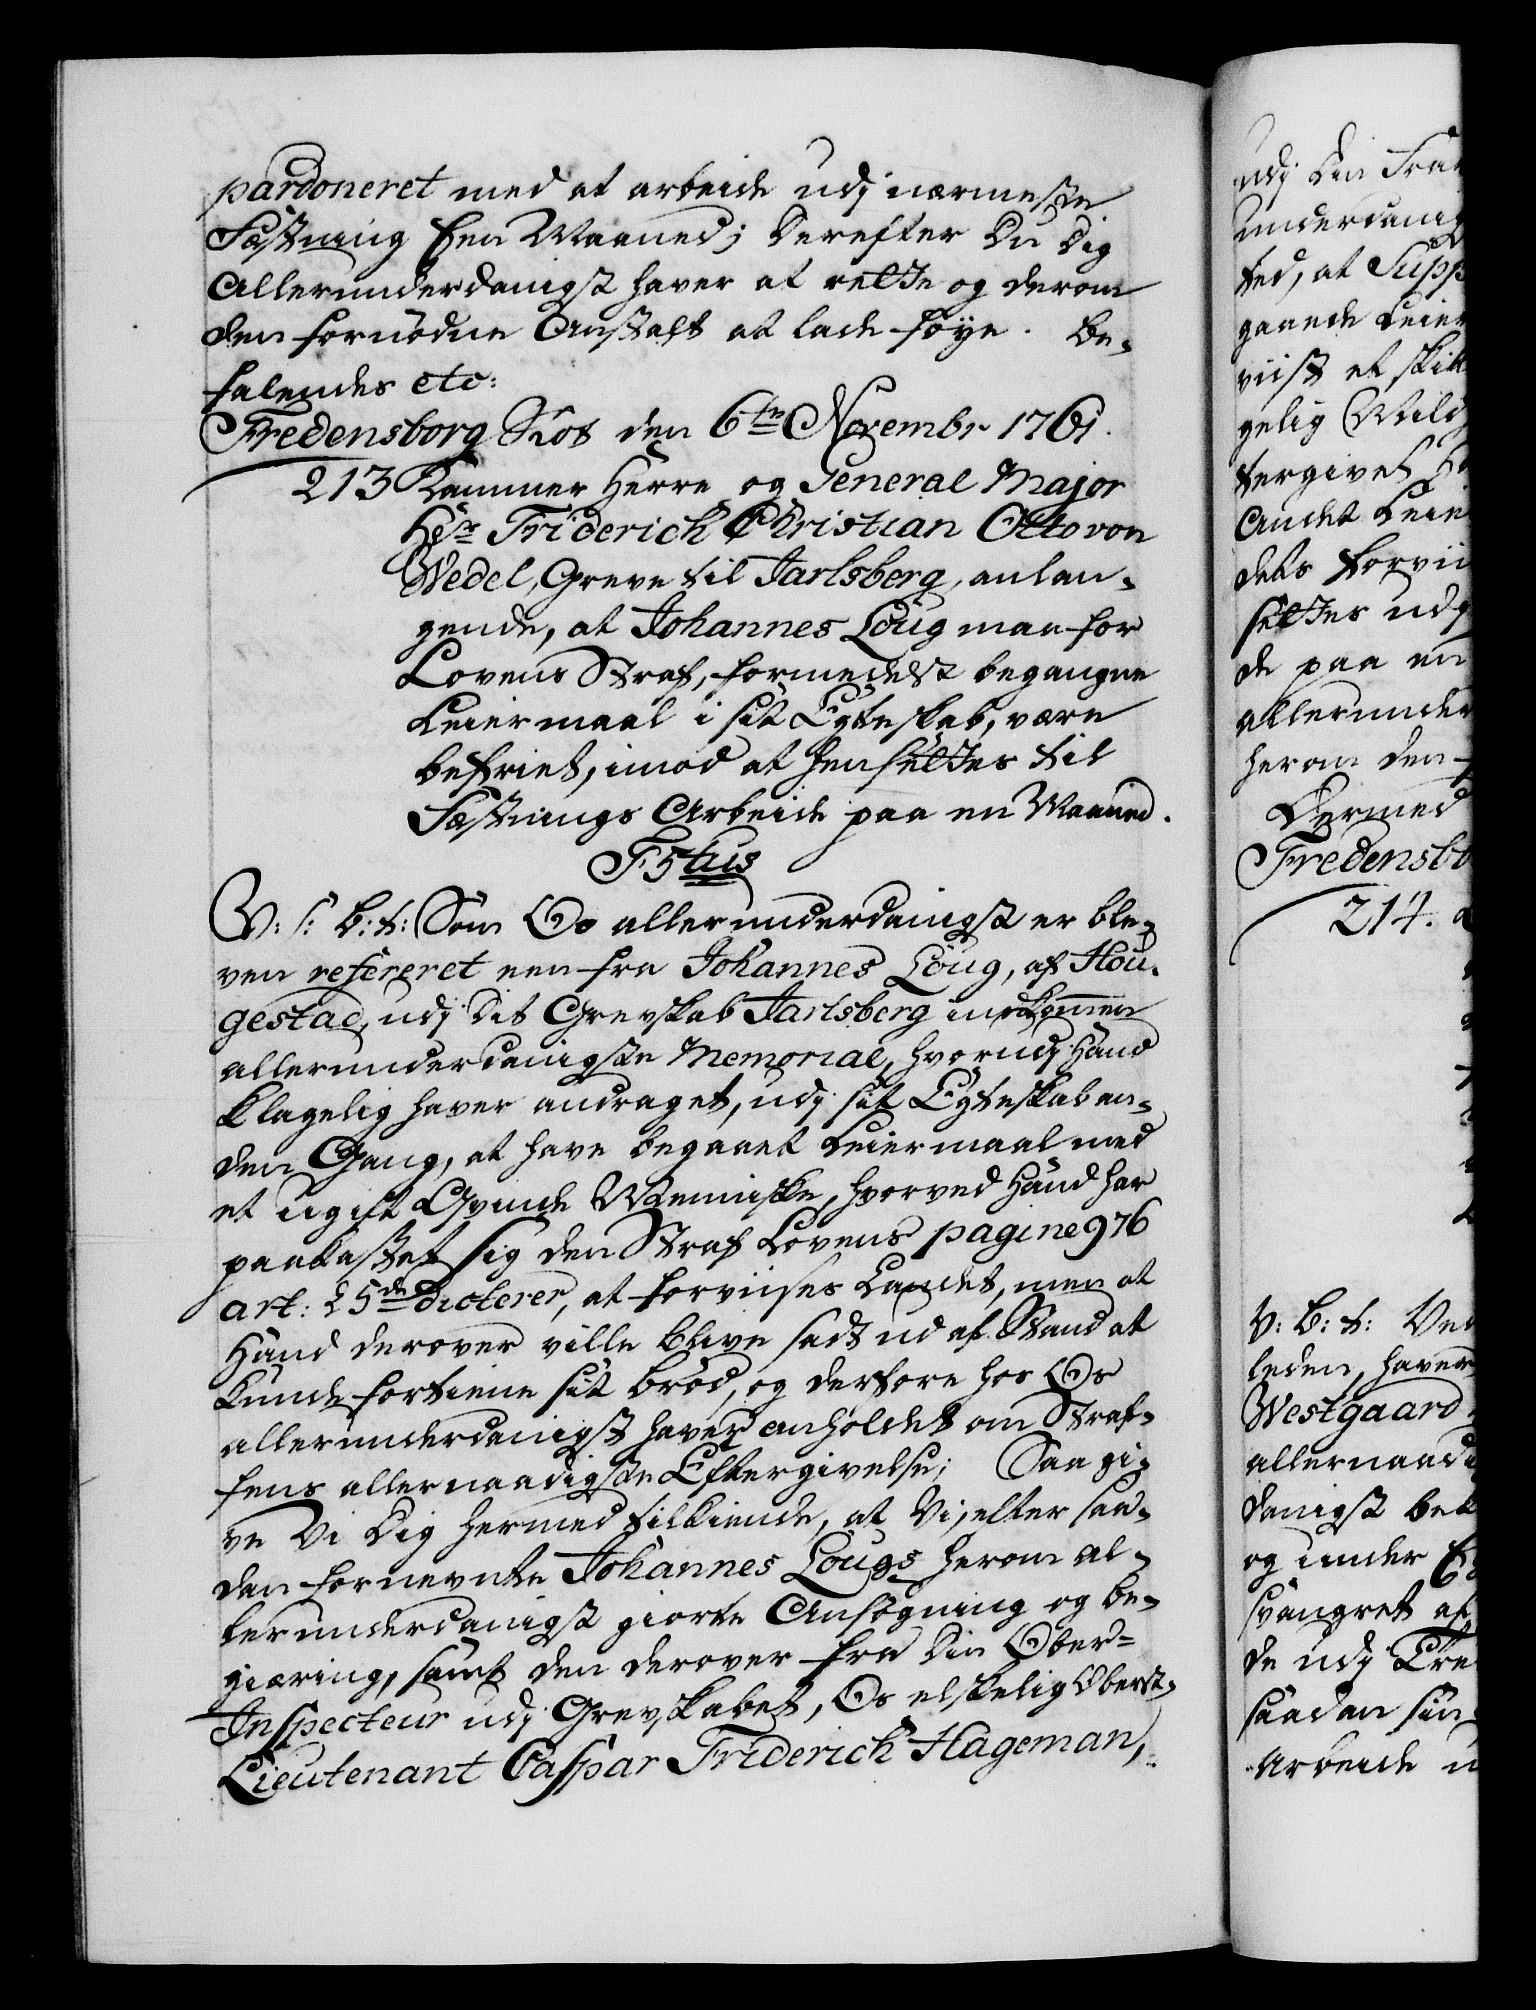 pardoneret med at arbeide udj nærmeste
Fæstning Een Maaned; Derefter Du Dig
Allerunderdanigst haver at rette og derom
den fornødne Anstalt at lade føye. Be-
falendes etc:
Fredensborg Slot den 6te Novembr 1761.
213 Kammer Herre og General Major
Hr Friderich Christian Otto von
Wedel, Greve til Jarlsberg, anlan-
gende, at Johannes Løug maa for
Lovens Straf, formedelst begangne
Leiermaal i sit Egteskab, være
befriet, imod at hensettes til
Fæstnings Arbeide paa en Maaned.
F5tus
V: s: b: t: Som Os allerunderdanigst er ble-
ven refereret een fra Johannes Løug, af Hou-
gestad, udj Dit Grevskab Jarlsberg indkommen
allerunderdanigste Memorial, hvorudj Hand
klagelig haver andraget, udj sit Egteskab an-
den Gang, at have begaaet Leiermaal med
et ugift Qvinde Menniske, hvorved Hand har
paakastet sig den Straf Lovens pagine 976
art: 25de dicterer, at forviises Landet, men at
Hand derover ville blive sadt ud af Stand at
kunde fortiene sit brød, og derfore hos Os
allerunderdanigst haver anholdet om Straf-
fens allernaadigste Eftergivelse; Saa gi-
ve Vi Dig hermed tilkiende, at Vi, efter saa-
dan fornevnte Johannes Lougs herom al-
lerunderdanigst giorte Ansøgning og be-
giæring, samt den derover fra Din Ober-
Inspecteur udj Grevskabet, Os elskelig Oberst-
Lieutenant Caspar Friderich Hageman,
udj den
underdanig
ted, at Supp
gaaede Leier
viist et skik
gelig
tergivet
Andet Leie
dets forvii
settes udj
de paa en
allerunder
herom den
Dermed
Fredensbo
214.
V: B: t: Ved
leden, haver
Westgaard
allernaad
danigst bek
og under
svangret af
de udj
saadan sin
Arbeide u